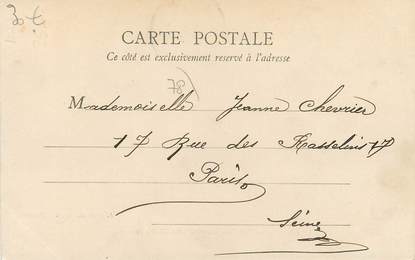 30 €
CARTE POSTALE
Ce côté est exclusivement reservé à l'adresse
78
Mademoiselle Jeanne Chevrier
17 Rue des 17
Paris
Seine